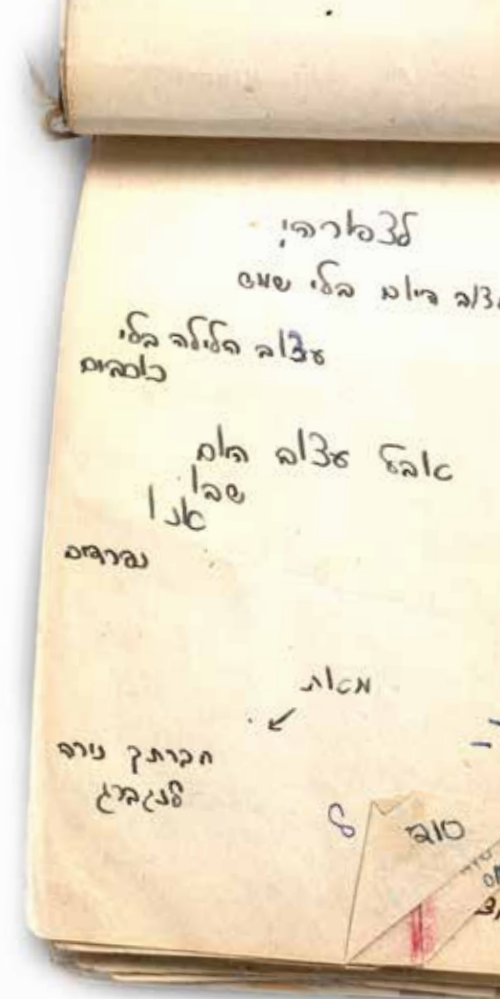 לצפורה!
עצוב היום בלי שמש
עצוב הלילה בלי
כוכבים
אבל עצוב היום
שבו
אנו
נפרדים
מאת
חברתך נירה
לנגברג
סוד